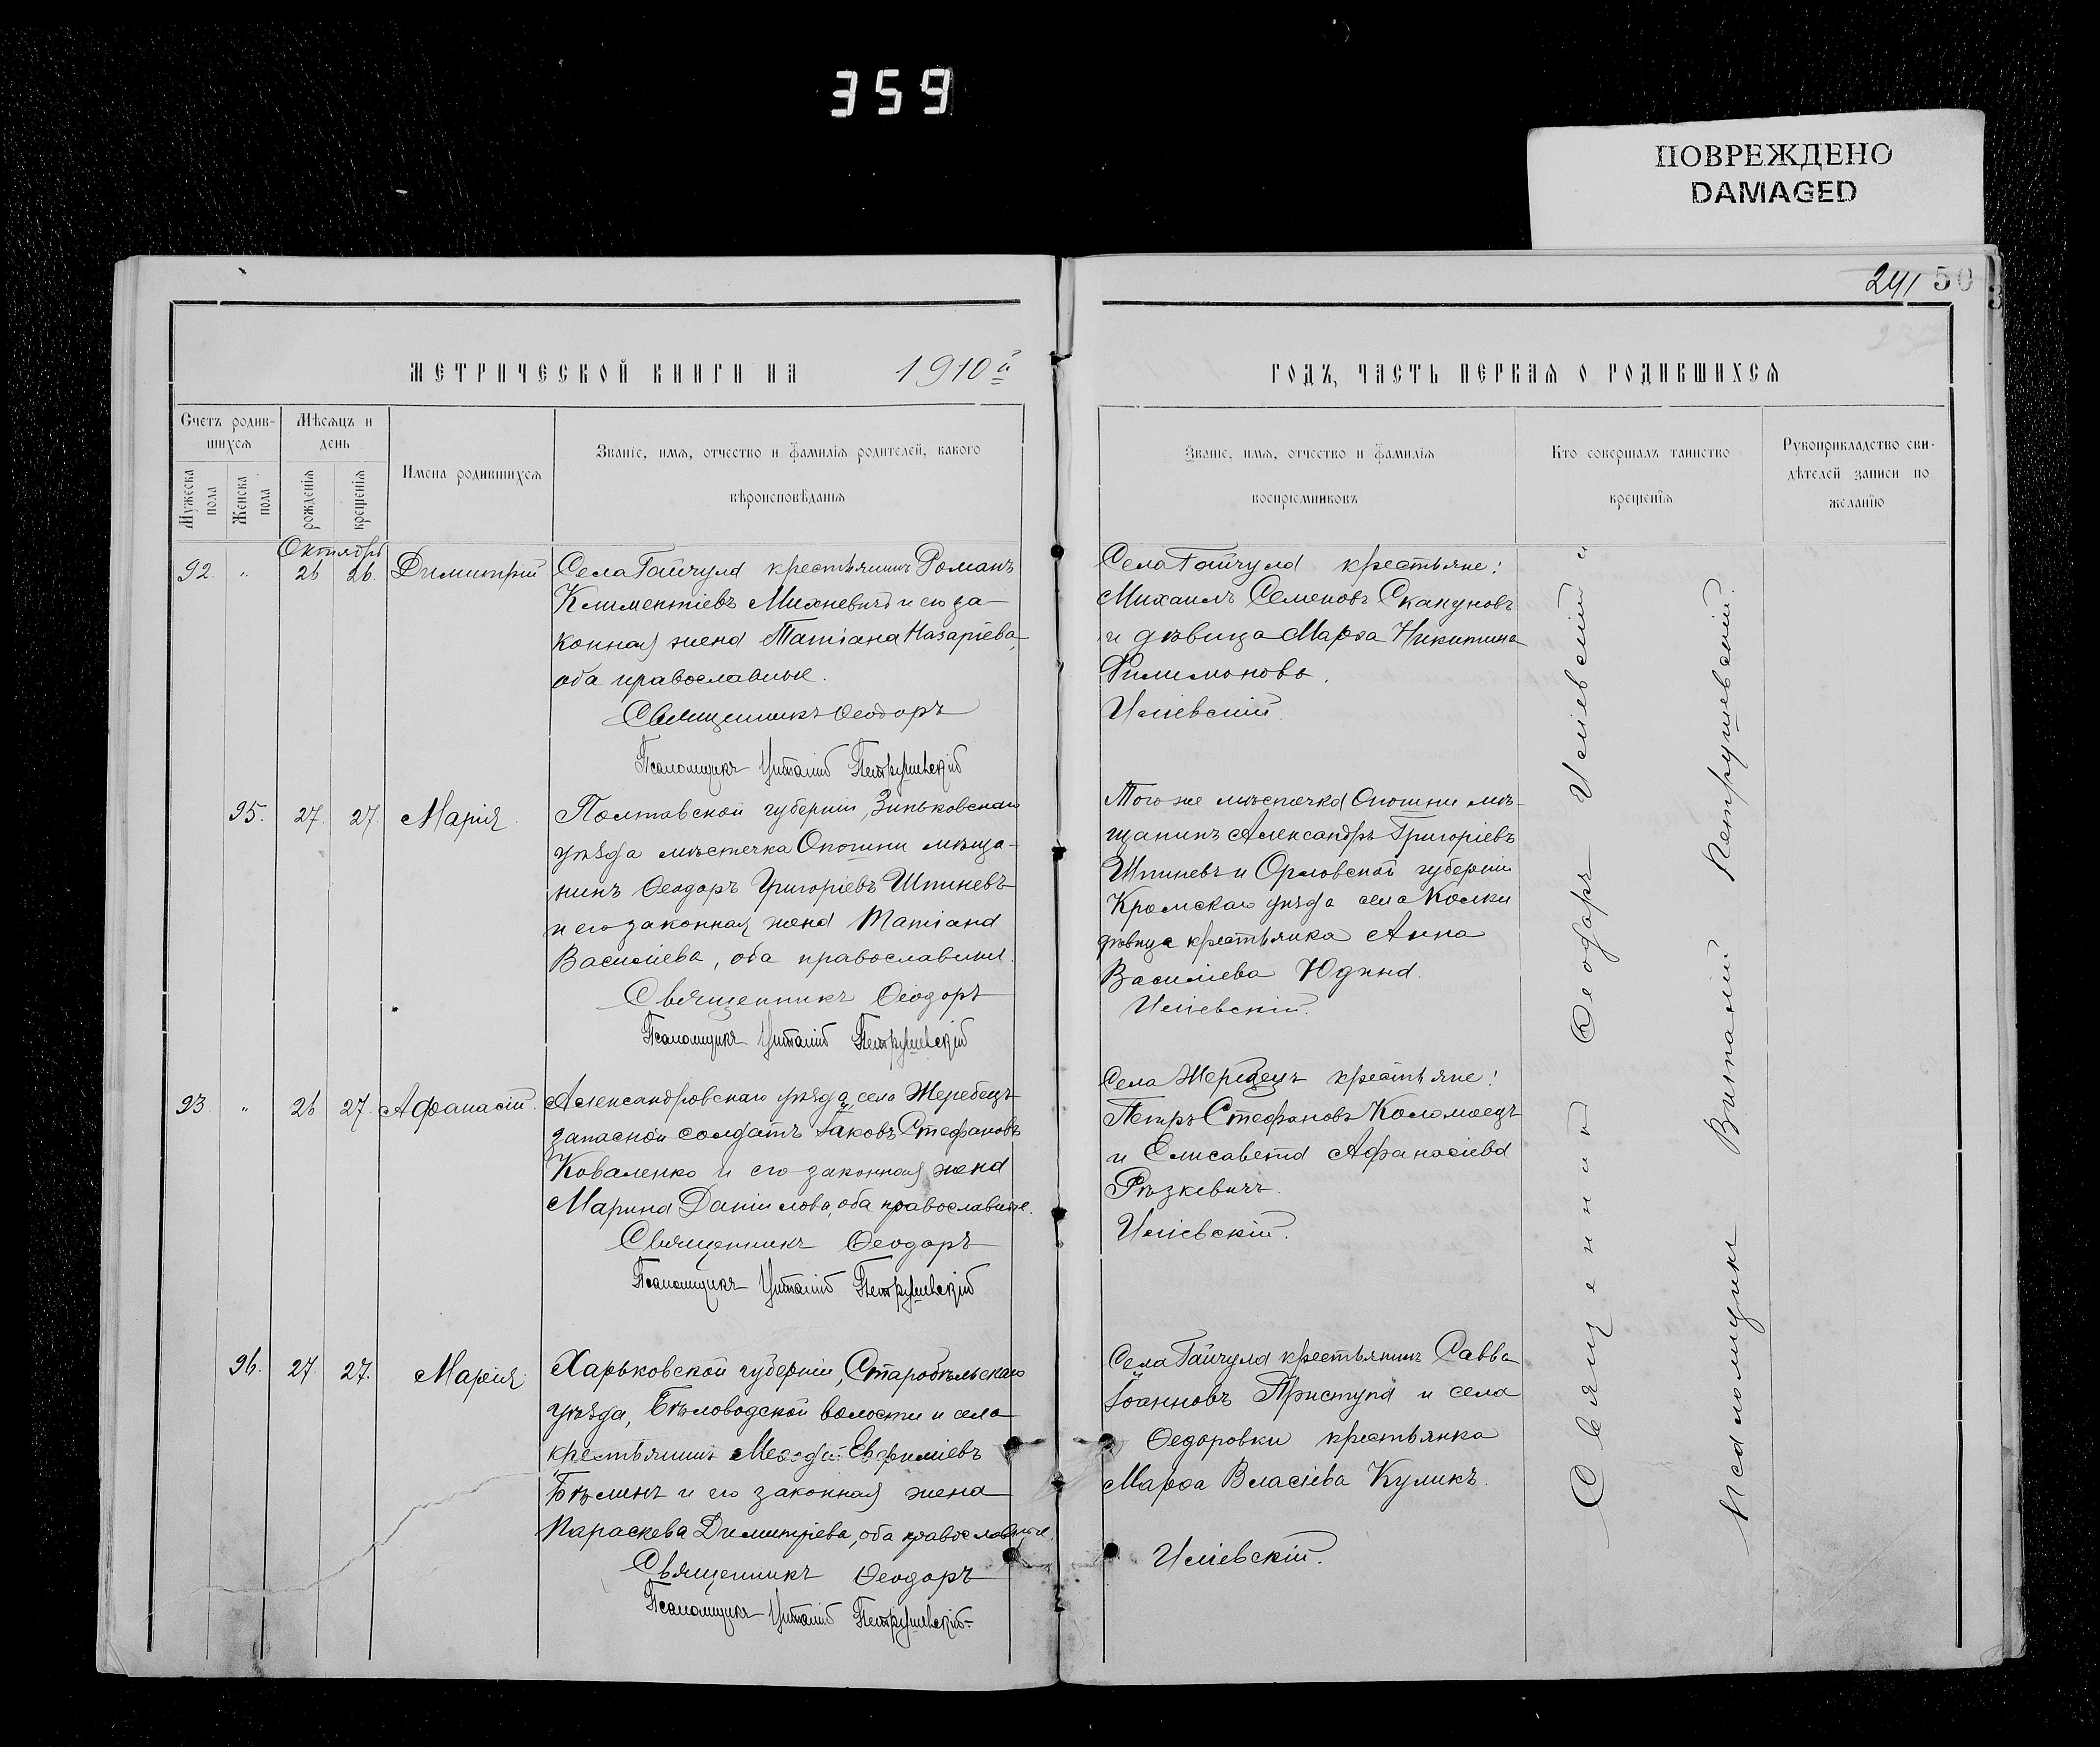 359
ПОВРЕЖДЕНО
DAMAGED
241 50
МЕТРИЧЕСКОЙ КНИГИ НА 1910й
Счетъ родив-
шихся
Мѣсяцъ и
день
Мужеска
пола
Женска
пола
рожденія
крещенія
Имена родившихся
Званіе, имя, отчество и фамилія родителей, какого
вѣроисповѣданія
Октябрь
92. " 26 26. Димитрій
Села Гайчула крестьянинъ Романъ
Климентіевъ Михневичъ и его за-
конная жена Татіана Назаріева,
оба православные.
Священникъ Ѳеодоръ
Псаломщикъ Виталій Петрушевскій
95. 27. 27 Марія
Полтавской губерніи, Зиньковскаго
уѣзда мѣстечка Опошни мѣща-
нинъ Ѳеодоръ Григоріевъ Шпиневъ
и его законная жена Татіана
Василіева, оба православные.
Священникъ Ѳеодоръ
Псаломщикъ Виталій Петрушевскій
93. " 26 27. Аѳанасій.
Александровскаго уѣзда, села Жеребецъ
запасной солдатъ Іаковъ Стефановъ
Коваленко и его законная жена
Марина Даніилова, оба православные.
Священникъ Ѳеодоръ
Псаломщикъ Виталій Петрушевскій
96. 27. 27. Марія
Харьковской губерніи, Старобѣльскаго
уѣзда, Бѣловодской волости и села
крестьянинъ Меѳодій Евфиміевъ
Бѣлинъ и его законная жена
Параскева Димитріева, оба православные.
Священникъ Ѳеодоръ
Псаломщикъ Виталій Петрушевскій
ГОДЪ, ЧАСТЬ ПЕРВАЯ О РОДИВШИХСЯ
Званіе, имя, отчество и фамилія
воспріемниковъ
Кто совершалъ таинство
крещенія
Рукоприкладство сви-
дѣтелей записи по
желанію
Села Гайчула крестьяне:
Михаилъ Семеновъ Скакуновъ
и дѣвица Марѳа Никитина
Филимонова.
Иліевскій.
Того же мѣстечка Опошни мѣ-
щанинъ Александръ Григоріевъ
Шпиневъ и Орловской губерніи
Кромскаго уѣзда села Колки
дѣвица крестьянка Анна
Василіева Юдина.
Иліевскій.
Села Жеребецъ крестьяне:
Петръ Стефановъ Коломоецъ
и Елисавета Афанасіева
Рѣзкевичъ.
Иліевскій.
Села Гайчула крестьянинъ Савва
Іоанновъ Приступа и села
Ѳедоровки крестьянка
Марѳа Власіева Куликъ.
Иліевскій.
Священникъ Ѳеодоръ Иліевскій и
Псаломщикъ Виталій Петрушевскій.